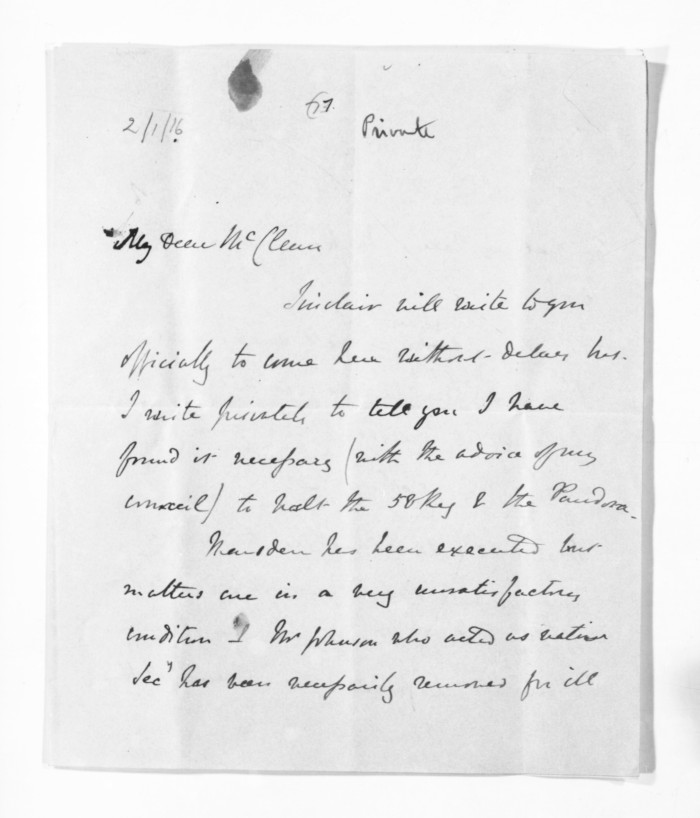 2/1/76
67.
Private
My Dear McClean
Sinclair will write to you
officially to come here without delay but
I write privately to tell you I have
found it necessary (with the advice of my
council) to halt the 58 Reg & the Pandora -
has been executed but
matters are in a very unsatisfactory
condition - Mr Johnson who acted as native
Secy has been necessarily removed for ill